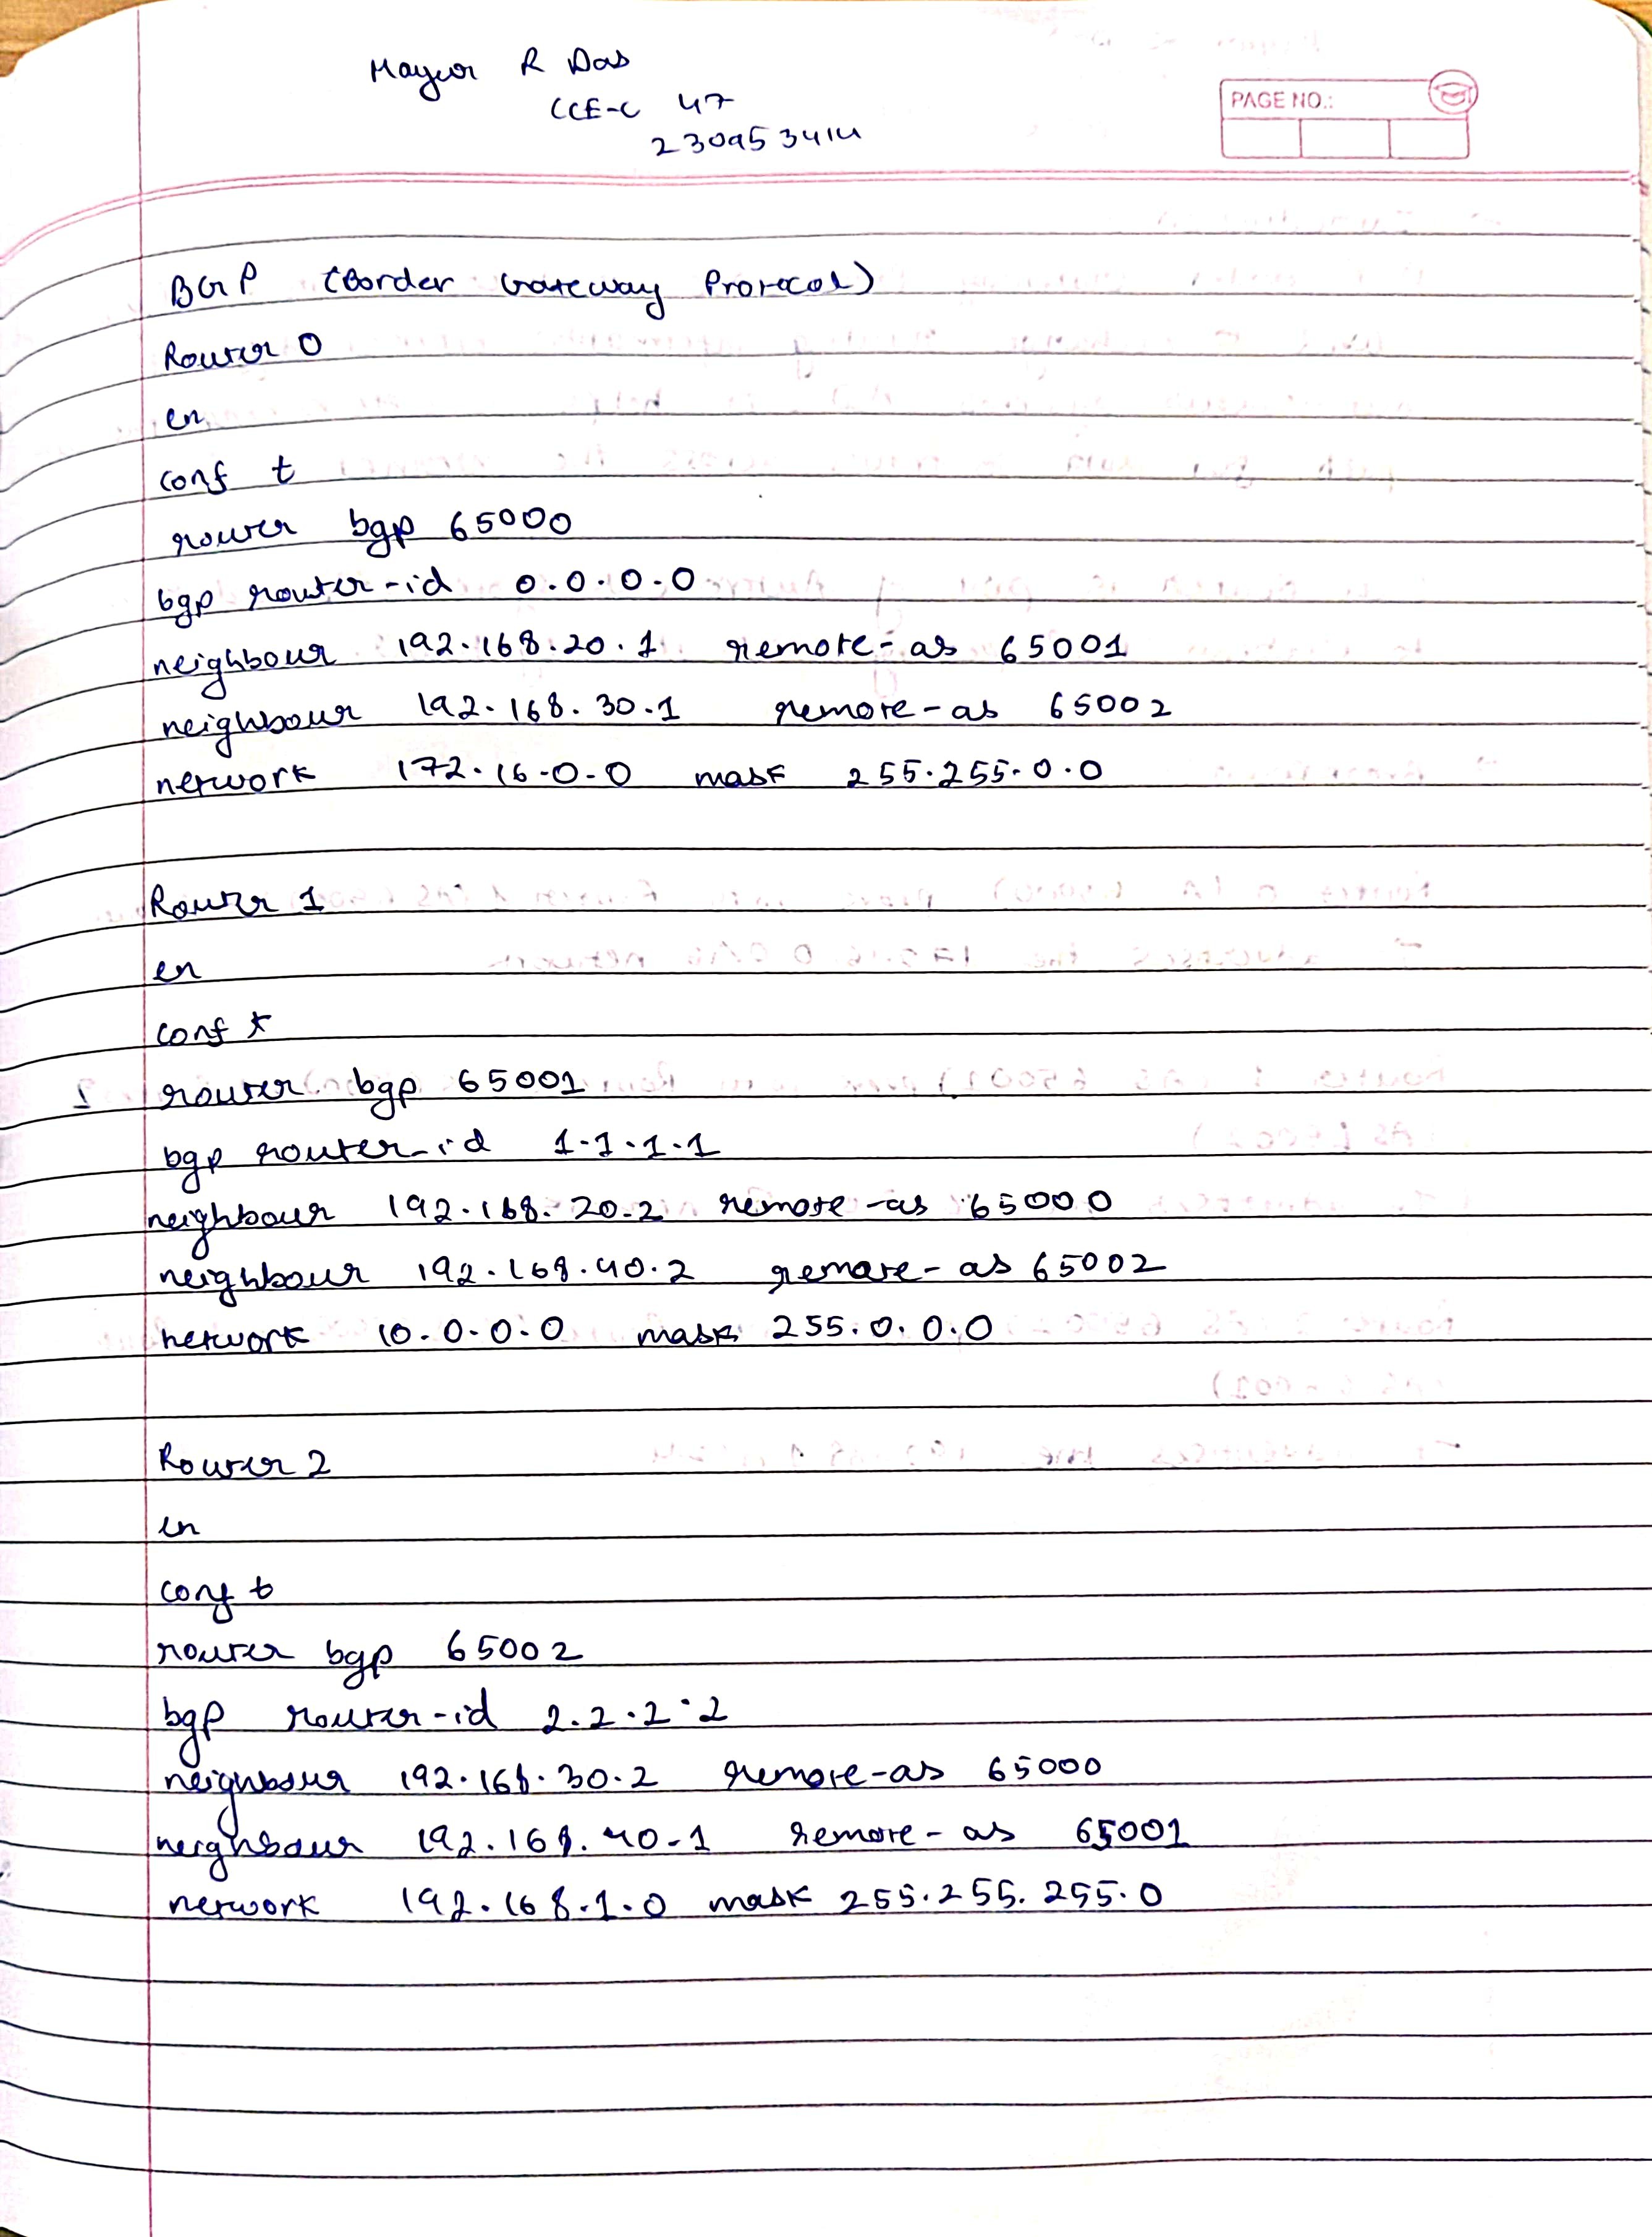 Mayur R Das
CCE-C 47
230953414
PAGE NO.:
BGP (Border Gateway Protocol)
Router 0
en
conf t
router bgp 65000
bgp router-id 0.0.0.0
neighbour 192.168.20.1 remote-as 65001
neighbour 192.168.30.1 remote-as 65002
network 172.16.0.0 mask 255.255.0.0
Router 1
en
conf t
router bgp 65001
bgp router-id 1.1.1.1
neighbour 192.168.20.2 remote-as 65000
neighbour 192.168.40.2 remote-as 65002
network 10.0.0.0 mask 255.0.0.0
Router 2
en
conf t
router bgp 65002
bgp router-id 2.2.2.2
neighbour 192.168.30.2 remote-as 65000
neighbour 192.168.40.1 remote-as 65001
network 192.168.1.0 mask 255.255.255.0